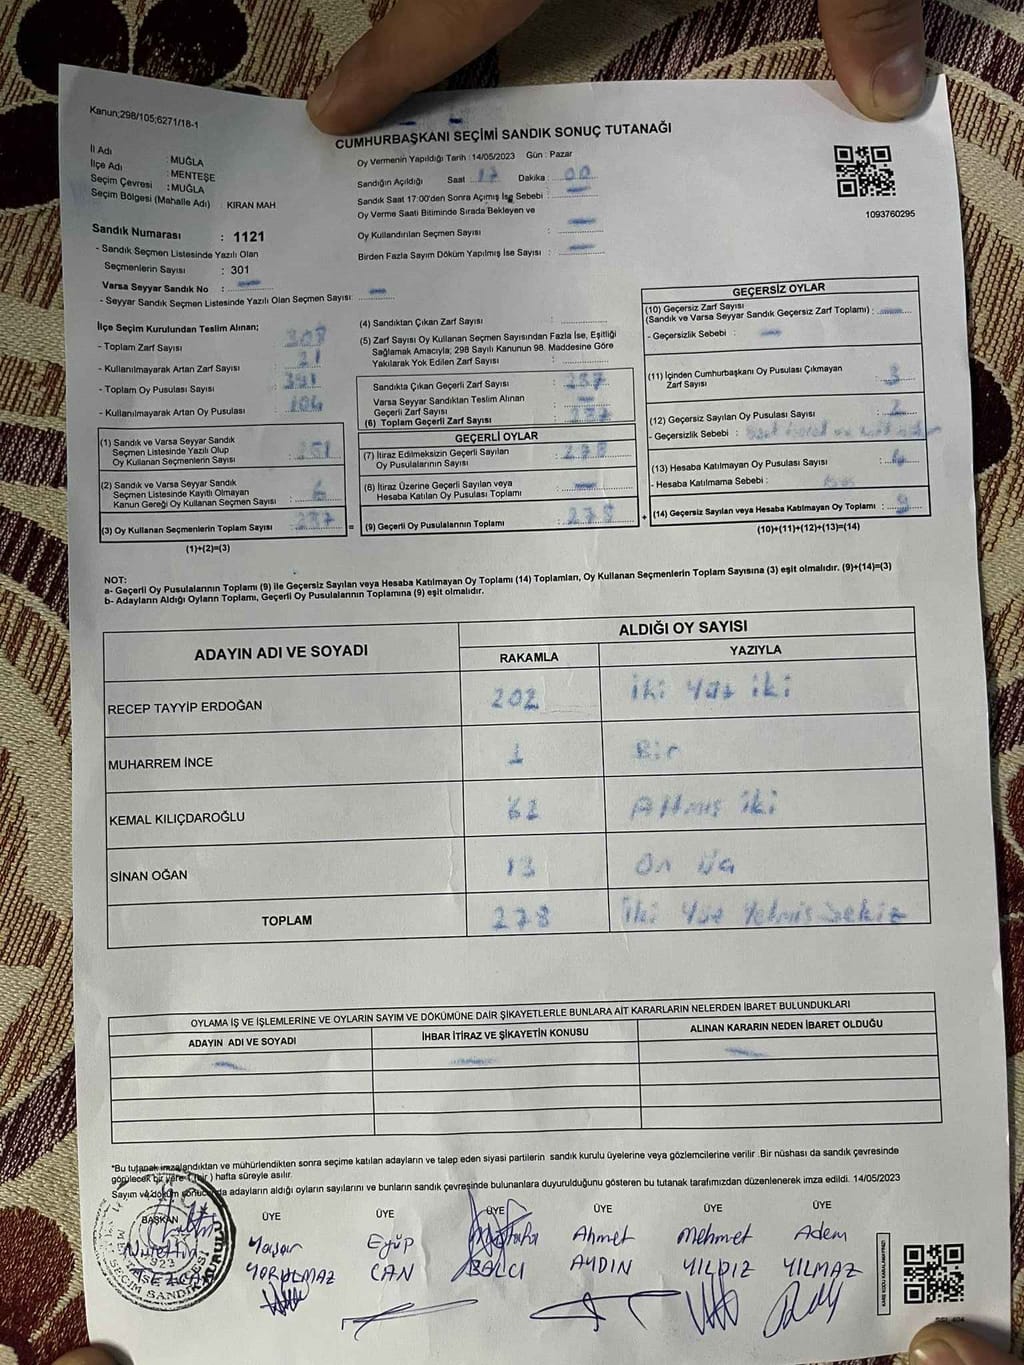 Kanun;298/105;6271/18-1
CUMHURBAŞKANI SEÇİMİ SANDIK SONUÇ TUTANAĞI
İl Adı : MUĞLA
İlçe Adı : MENTEŞE
Seçim Çevresi : MUĞLA
Seçim Bölgesi (Mahalle Adı) : KIRAN MAH
Oy Vermenin Yapıldığı Tarih : 14/05/2023 Gün : Pazar
Sandığın Açıldığı Saat : 17 Dakika : 00
Sandık Saat 17:00'den Sonra Açımış İse Sebebi :
Oy Verme Saati Bitiminde Sırada Bekleyen ve
Oy Kullandırılan Seçmen Sayısı :
Birden Fazla Sayım Döküm Yapılmış İse Sayısı :
1093760295
Sandık Numarası : 1121
- Sandık Seçmen Listesinde Yazılı Olan
Seçmenlerin Sayısı : 301
Varsa Seyyar Sandık No :
- Seyyar Sandık Seçmen Listesinde Yazılı Olan Seçmen Sayısı:
İlçe Seçim Kurulundan Teslim Alınan;
- Toplam Zarf Sayısı : 308
- Kullanılmayarak Artan Zarf Sayısı : 21
- Toplam Oy Pusulası Sayısı : 391
- Kullanılmayarak Artan Oy Pusulası : 104
(1) Sandık ve Varsa Seyyar Sandık
Seçmen Listesinde Yazılı Olup
Oy Kullanan Seçmenlerin Sayısı : 281
(2) Sandık ve Varsa Seyyar Sandık
Seçmen Listesinde Kayıtlı Olmayan
Kanun Gereği Oy Kullanan Seçmen Sayısı : 6
(3) Oy Kullanan Seçmenlerin Toplam Sayısı : 287
(1)+(2)=(3)
(4) Sandıktan Çıkan Zarf Sayısı :
(5) Zarf Sayısı Oy Kullanan Seçmen Sayısından Fazla İse, Eşitliği
Sağlamak Amacıyla; 298 Sayılı Kanunun 98. Maddesine Göre
Yakılarak Yok Edilen Zarf Sayısı :
Sandıkta Çıkan Geçerli Zarf Sayısı : 287
Varsa Seyyar Sandıktan Teslim Alınan
Geçerli Zarf Sayısı :
(6) Toplam Geçerli Zarf Sayısı : 287
GEÇERLİ OYLAR
(7) İtiraz Edilmeksizin Geçerli Sayılan
Oy Pusulalarının Sayısı : 278
(8) İtiraz Üzerine Geçerli Sayılan veya
Hesaba Katılan Oy Pusulası Toplamı :
= (9) Geçerli Oy Pusulalarının Toplamı : 278
GEÇERSİZ OYLAR
(10) Geçersiz Zarf Sayısı
(Sandık ve Varsa Seyyar Sandık Geçersiz Zarf Toplamı) :
- Geçersizlik Sebebi :
(11) İçinden Cumhurbaşkanı Oy Pusulası Çıkmayan
Zarf Sayısı : 3
(12) Geçersiz Sayılan Oy Pusulası Sayısı : 2
- Geçersizlik Sebebi :
(13) Hesaba Katılmayan Oy Pusulası Sayısı : 4
- Hesaba Katılmama Sebebi :
+ (14) Geçersiz Sayılan veya Hesaba Katılmayan Oy Toplamı : 9
(10)+(11)+(12)+(13)=(14)
NOT:
a- Geçerli Oy Pusulalarının Toplamı (9) ile Geçersiz Sayılan veya Hesaba Katılmayan Oy Toplamı (14) Toplamları, Oy Kullanan Seçmenlerin Toplam Sayısına (3) eşit olmalıdır. (9)+(14)=(3)
b- Adayların Aldığı Oyların Toplamı, Geçerli Oy Pusulalarının Toplamına (9) eşit olmalıdır.
ADAYIN ADI VE SOYADI
ALDIĞI OY SAYISI
RAKAMLA YAZIYLA
RECEP TAYYİP ERDOĞAN 202 İki Yüz iki
MUHARREM İNCE 1 Bir
KEMAL KILIÇDAROĞLU 62 Altmış iki
SİNAN OĞAN 13 On Üç
TOPLAM 278 İki Yüz Yetmiş Sekiz
OYLAMA İŞ VE İŞLEMLERİNE VE OYLARIN SAYIM VE DÖKÜMÜNE DAİR ŞİKAYETLERLE BUNLARA AİT KARARLARIN NELERDEN İBARET BULUNDUKLARI
ADAYIN ADI VE SOYADI İHBAR İTİRAZ VE ŞİKAYETİN KONUSU ALINAN KARARIN NEDEN İBARET OLDUĞU
*Bu tutanak imzalandıktan ve mühürlendikten sonra seçime katılan adayların ve talep eden siyasi partilerin sandık kurulu üyelerine veya gözlemcilerine verilir .Bir nüshası da sandık çevresinde
görülecek bir yere ( bir ) hafta süreyle asılır.
Sayım ve döküm sonucunda adayların aldığı oyların sayılarını ve bunların sandık çevresinde bulunanlara duyurulduğunu gösteren bu tutanak tarafımızdan düzenlenerek imza edildi. 14/05/2023
BAŞKAN ÜYE ÜYE ÜYE ÜYE ÜYE ÜYE
Nurettin Yaşar Eyüp Mustafa Ahmet Mehmet Adem
TEZCAN YORULMAZ CAN BALCI AYDIN YILDIZ YILMAZ